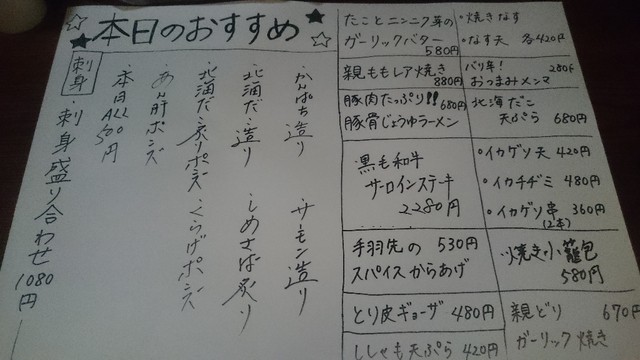 本日のおすすめ
刺身
・刺身盛り合わせ 1080円
本日ALL500円
かんぱち造り
サーモン造り
北海だこ造り
しめさば炙り
北海だこ炙りポンズ
くらげポンズ
あん肝ポンズ
たことニンニク芽の
ガーリックバター
580円
・焼きなす
・なす天 各420円
親ももレア焼き
880円
バリ辛!
おつまみメンマ
280円
豚肉たっぷり!!
豚骨じょうゆラーメン
680円
北海だこ
天ぷら 680円
黒毛和牛
サーロインステーキ
2280円
・イカゲソ天 420円
・イカチヂミ 480円
・イカゲソ串 360円
(2本)
手羽先の 530円
スパイスからあげ
焼き小籠包
580円
とり皮ギョーザ 480円
親どり 670円
ガーリック焼き
ししゃも天ぷら 420円